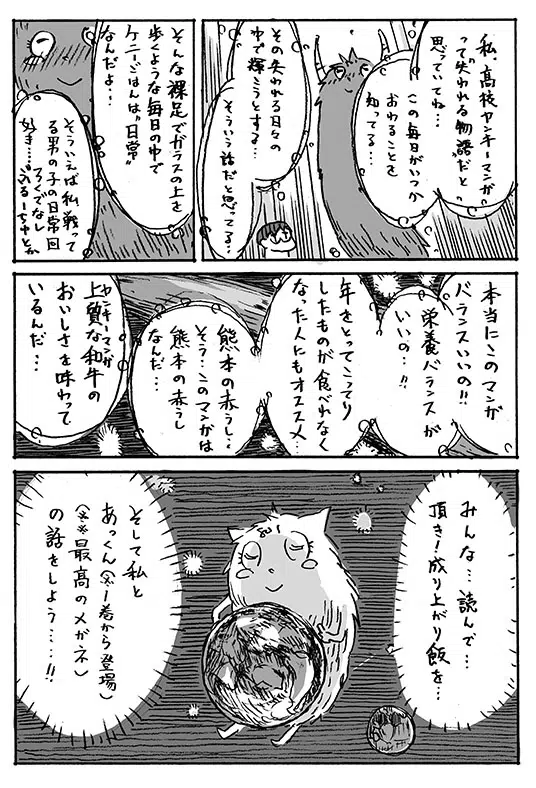 私、高校ヤンキーマンガ
って"失われる物語"だと
思っていてね…
この毎日がいつか
おわることを
知ってる…
その失われる日々の
中で輝こうとするよ…
そういう話だと思ってる…
そんな裸足でガラスの上を
歩くような毎日の中で
ケニーごはんは"日常"
なんだよ…
そういえば私戦って
る男の子の日常回
好き……
ろくでなし
ぶるーちゅとか
本当にこのマンガ
バランスいいの!!
栄養バランスが
いいの…!!
年をとってこってり
したものが食べれなく
なった人にもオススメ…
熊本の赤うし…
そう…このマンガは
熊本の赤うし
なんだ…
ヤンキーマンガ
上質な和牛の
おいしさを味わって
いるんだ…
みんな…読んで…
頂き!成り上がり飯を…
そして私と
あっくん(※1巻から登場)
(※※最高のメガネ)
の話をしよう……!!